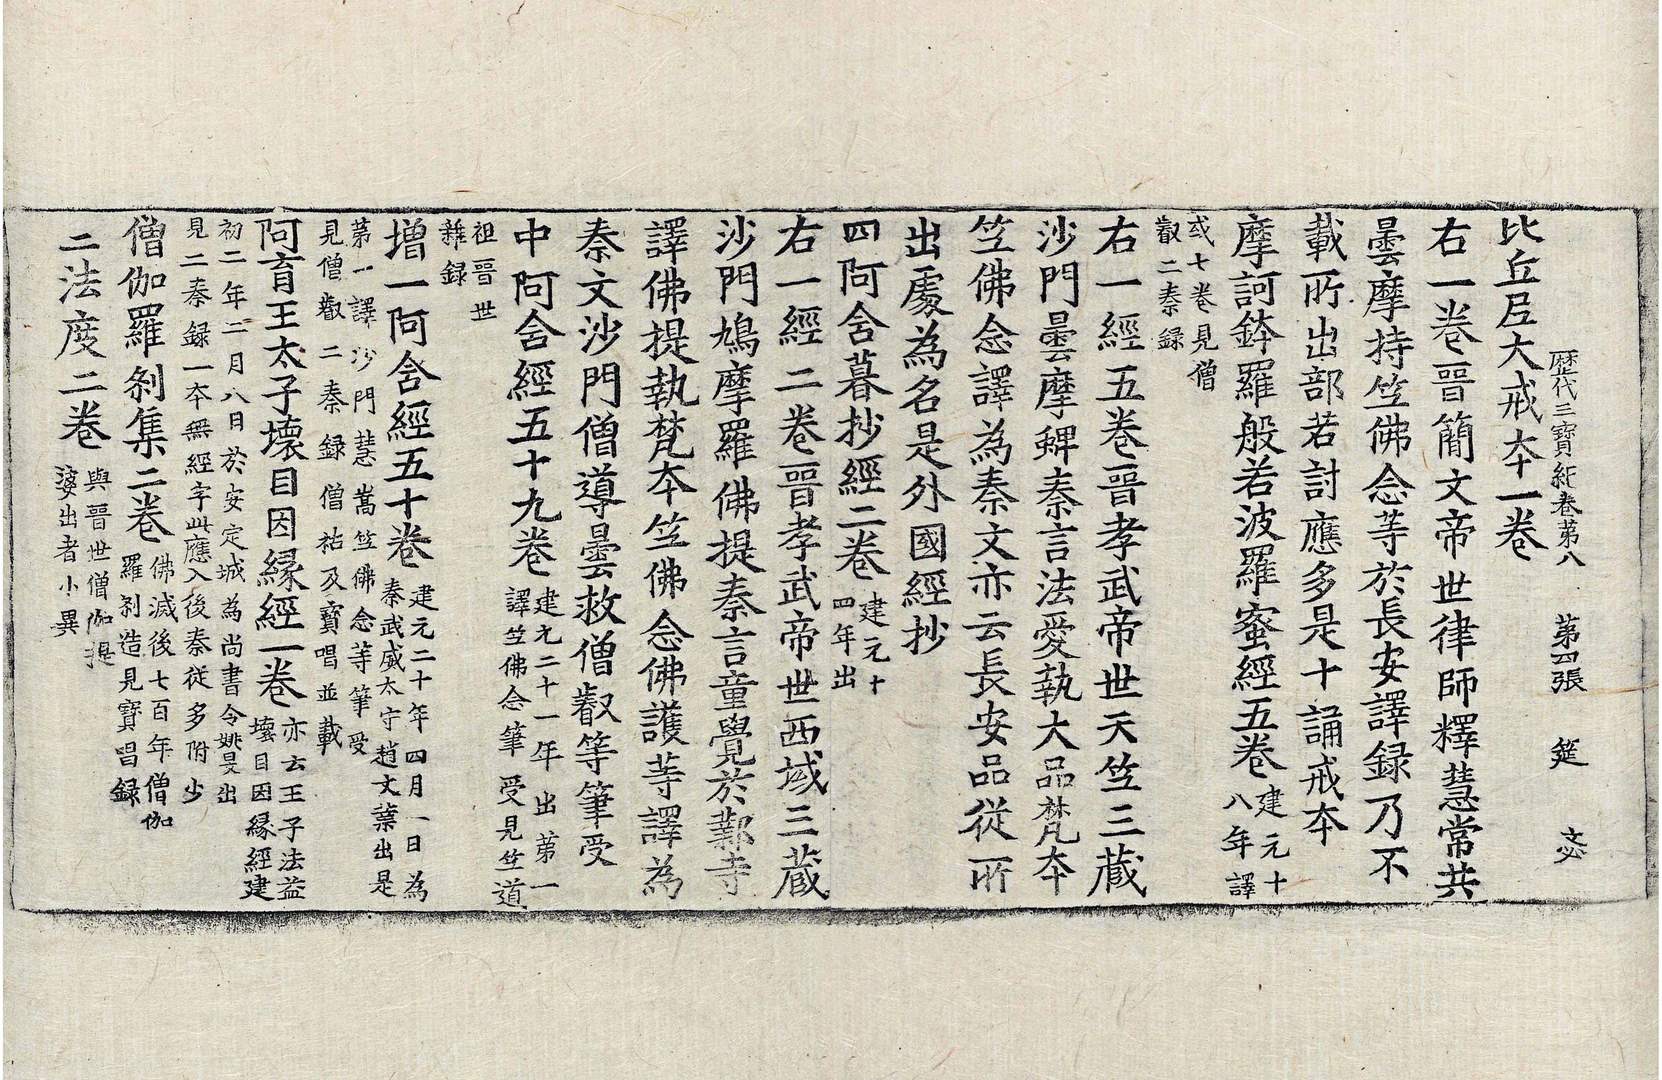 歷代三寶紀卷第八 第四張 筵 文必
比丘尼大戒本一卷
右一卷晉簡文帝世律師釋慧常共
曇摩持竺佛念等於長安譯錄乃不
載所出部若討應多是十誦戒本
摩訶鉢羅般若波羅蜜經五卷建元十
八年譯
或七卷見僧
叡二秦録
右一經五卷晉孝武帝世天竺三藏
沙門曇摩蜱秦言法愛執大品梵本
竺佛念譯為秦文亦云長安品從所
出處為名是外國經抄
四阿含暮抄經二卷建元十
四年出
右一經二卷晉孝武帝世西域三藏
沙門鳩摩羅佛提秦言童覺於鄴寺
譯佛提執梵本竺佛念佛護等譯為
秦文沙門僧導曇救僧叡等筆受
中阿含經五十九卷建元二十一年出第一
譯竺佛念筆受見竺道
祖晉世
雜録
增一阿含經五十卷建元二十年四月一日為
秦武威太守趙文業出是
第一譯沙門慧嵩竺佛念等筆受
見僧叡二秦録僧祐及寶唱並載
阿育王太子壞目因緣經一卷亦云王子法益
壞目因緣經建
初二年二月八日於安定城為尚書令姚旻出
見二秦録一本無經字此應入後秦從多附少
僧伽羅剎集二卷佛滅後七百年僧伽
羅剎造見寶唱録
二法度二卷與晉世僧伽提
婆出者小異